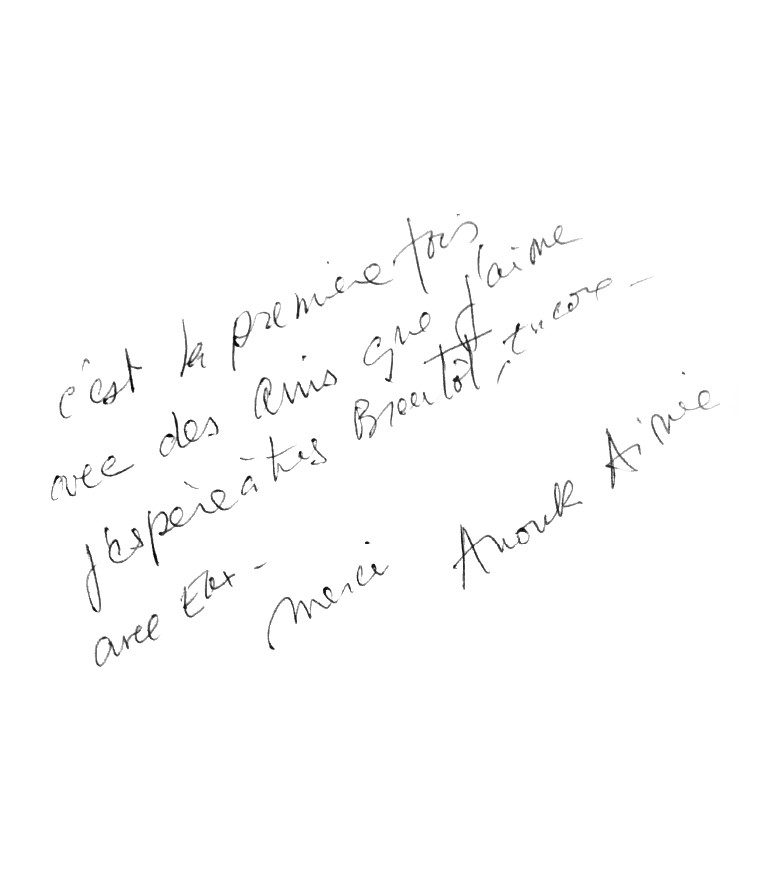 c'est la première fois
avec des amis que j'aime
j'espère à très Bientôt, encore -
avec Eux -
merci Anouk Aimée